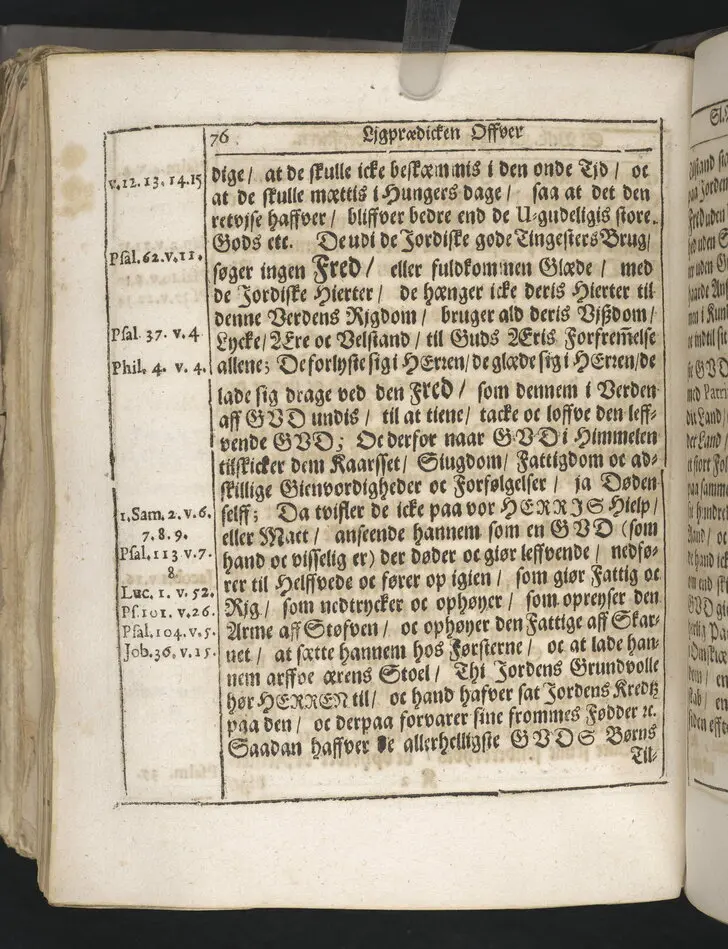 76 Ljgprædicken Offver
v.12.13.14.15
Psal.62.v.11.
Psal. 37. v. 4
Phil. 4. v. 4.
1.Sam. 2. v. 6.
7. 8. 9.
Psal. 113 v. 7.
8.
Luc. 1. v. 52.
Ps.101. v.26.
Psal.104. v.5.
Job.36. v.15.
dige/ at de skulle icke beskæmmis i den onde Tjd/ oc
at de skulle mættis i Hungers dage/ saa at det den
retvjse haffver/ bliffver bedre end de U-gudeligis store
Gods etc. De udi de Jordiske gode Tingesters Brug/
søger ingen Fred/ eller fuldkommen Glæde/ med
de Jordiske Hierter/ de hænger icke deris Hierter til
denne Verdens Rjgdom/ bruger ald deris Vjßdom/
Lycke/ Ære oc Velstand/ til Guds Æris Forfrem̃else
allene; De forlyste sig i HErren/ de glæde sig i HErren/ de
lade sig drage ved den Fred/ som dennem i Verden
aff GVD undis/ til at tiene/ tacke oc loffve den leff-
vende GVD; Oc derfor naar GVD i Himmelen
tilskicker dem Kaarsset/ Siugdom/ Fattigdom oc ad-
skillige Gienvordigheder oc Forfølgelser/ ja Døden
selff; Da tvifler de icke paa vor HERRIS Hielp/
eller Mact/ anseende hannem som en GVD (som
hand oc visselig er) der døder oc giør leffvende/ nedfø-
rer til Helffvede oc fører op igien/ som giør Fattig oc
Rjg/ som nedtrycker oc ophøyer/ som opreyser den
Arme aff Støfven/ oc ophøyer den Fattige aff Skar-
net/ at sætte hannem hos Førsterne/ oc at lade han-
nem arffve ærens Stoel/ Thi Jordens Grundvolle
hør HERREN til/ oc hand hafver sat Jordens Kredtz
paa den/ oc derpaa forvarer sine frommes Fødder ꝛc.
Saadan haffver de allerhelligste GVDS Børns
Til-